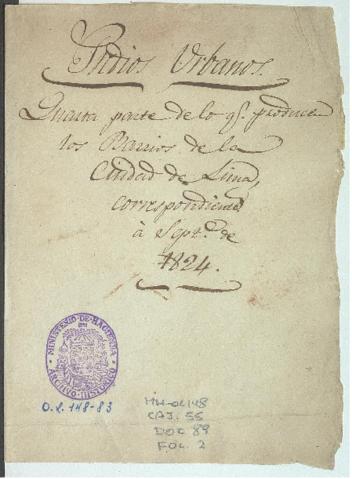 Prdios Urbanos.
Quarta parte de lo q.^ producen
los Barrios de la
Ciudad de Lima,
correspondiente
à Sept.e de
1824.
MINISTERIO-DE-HACIENDA
ARCHIVO-HISTORICO
O.L. 148-83
MH-OL148
CAJ. 55
DOC 89
FOL. 2